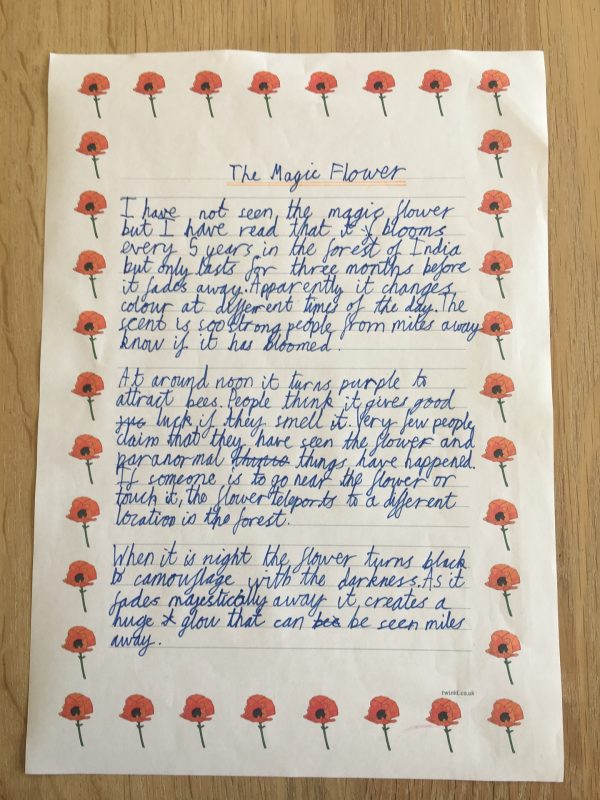 The Magic Flower
I have not seen the magic flower
but I have read that it blooms
every 5 years in the forest of India
but only lasts for three months before
it fades away. Apparently it changes
colour at different times of the day. The
scent is soo strong people from miles away
know if it has bloomed.
At around noon it turns purple to
attract bees. People think it gives good
luck if they smell it. Very few people
claim that they have seen the flower and
paranormal things have happened.
If someone is to go near the flower or
touch it, the flower teleports to a different
location is the forest.
When it is night the flower turns black
to camouflage with the darkness. As it
fades majestically away it creates a
huge glow that can be seen miles
away.
twinkl.co.uk